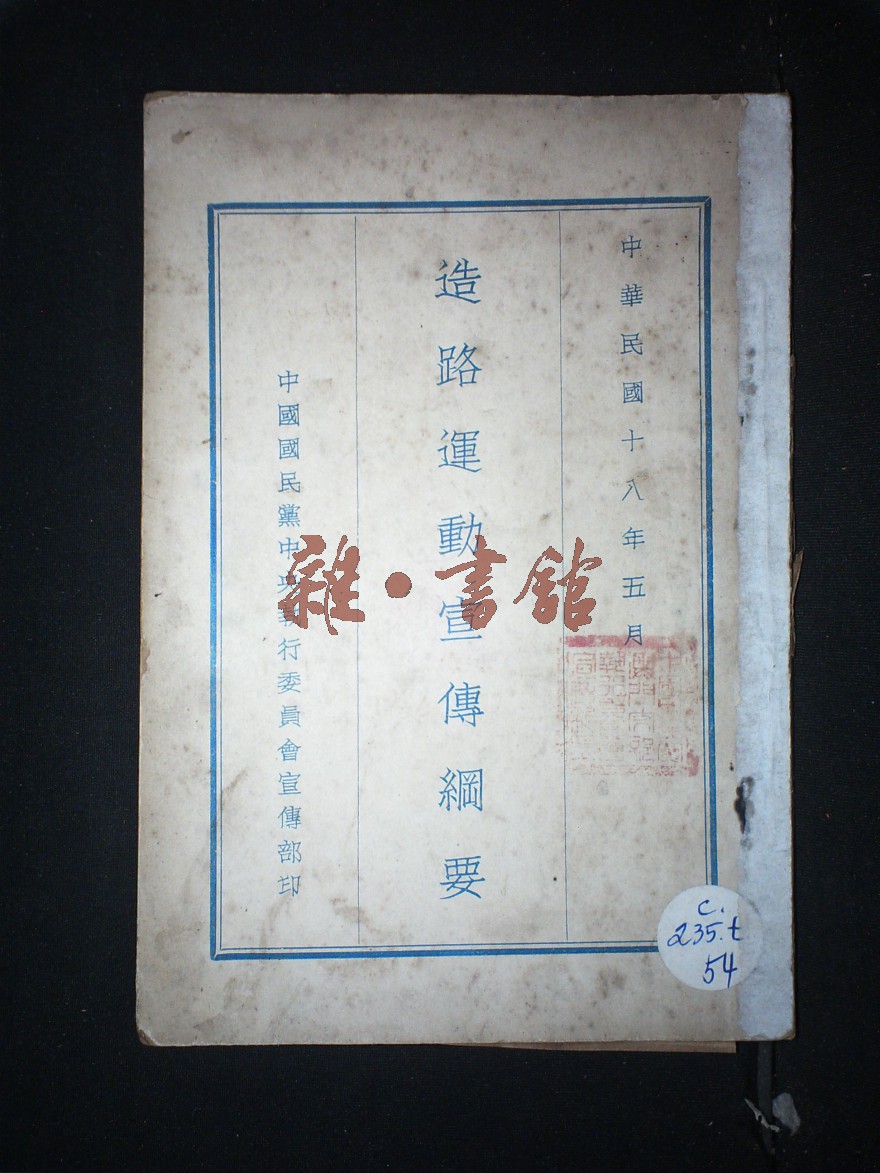 中華民國十八年五月
造路運動宣傳綱要
中國國民黨中央執行委員會宣傳部印
雜·書館
C.
235.t
54